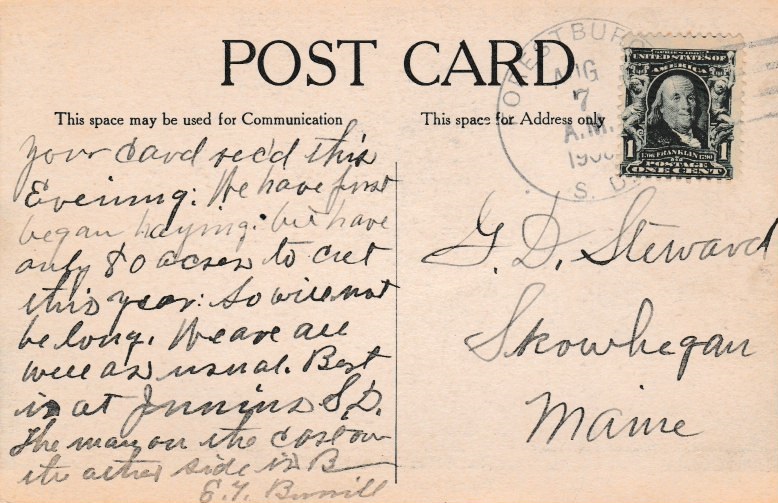 POST CARD
This space may be used for Communication
This space for Address only
FORESTBURG
AUG
7
A.M.
S. D.
UNITED STATES OF
AMERICA
1
1706 FRANKLIN 1790
1
POSTAGE
ONE CENT
your Card rec'd this
Evening: We have just
began haying: but have
only 80 acres to cut
this year: So will not
be long. We are all
well as usual. Bert
is at S.D.
The man on the
the other side is B
G. D. Steward
Skowhegan
Maine